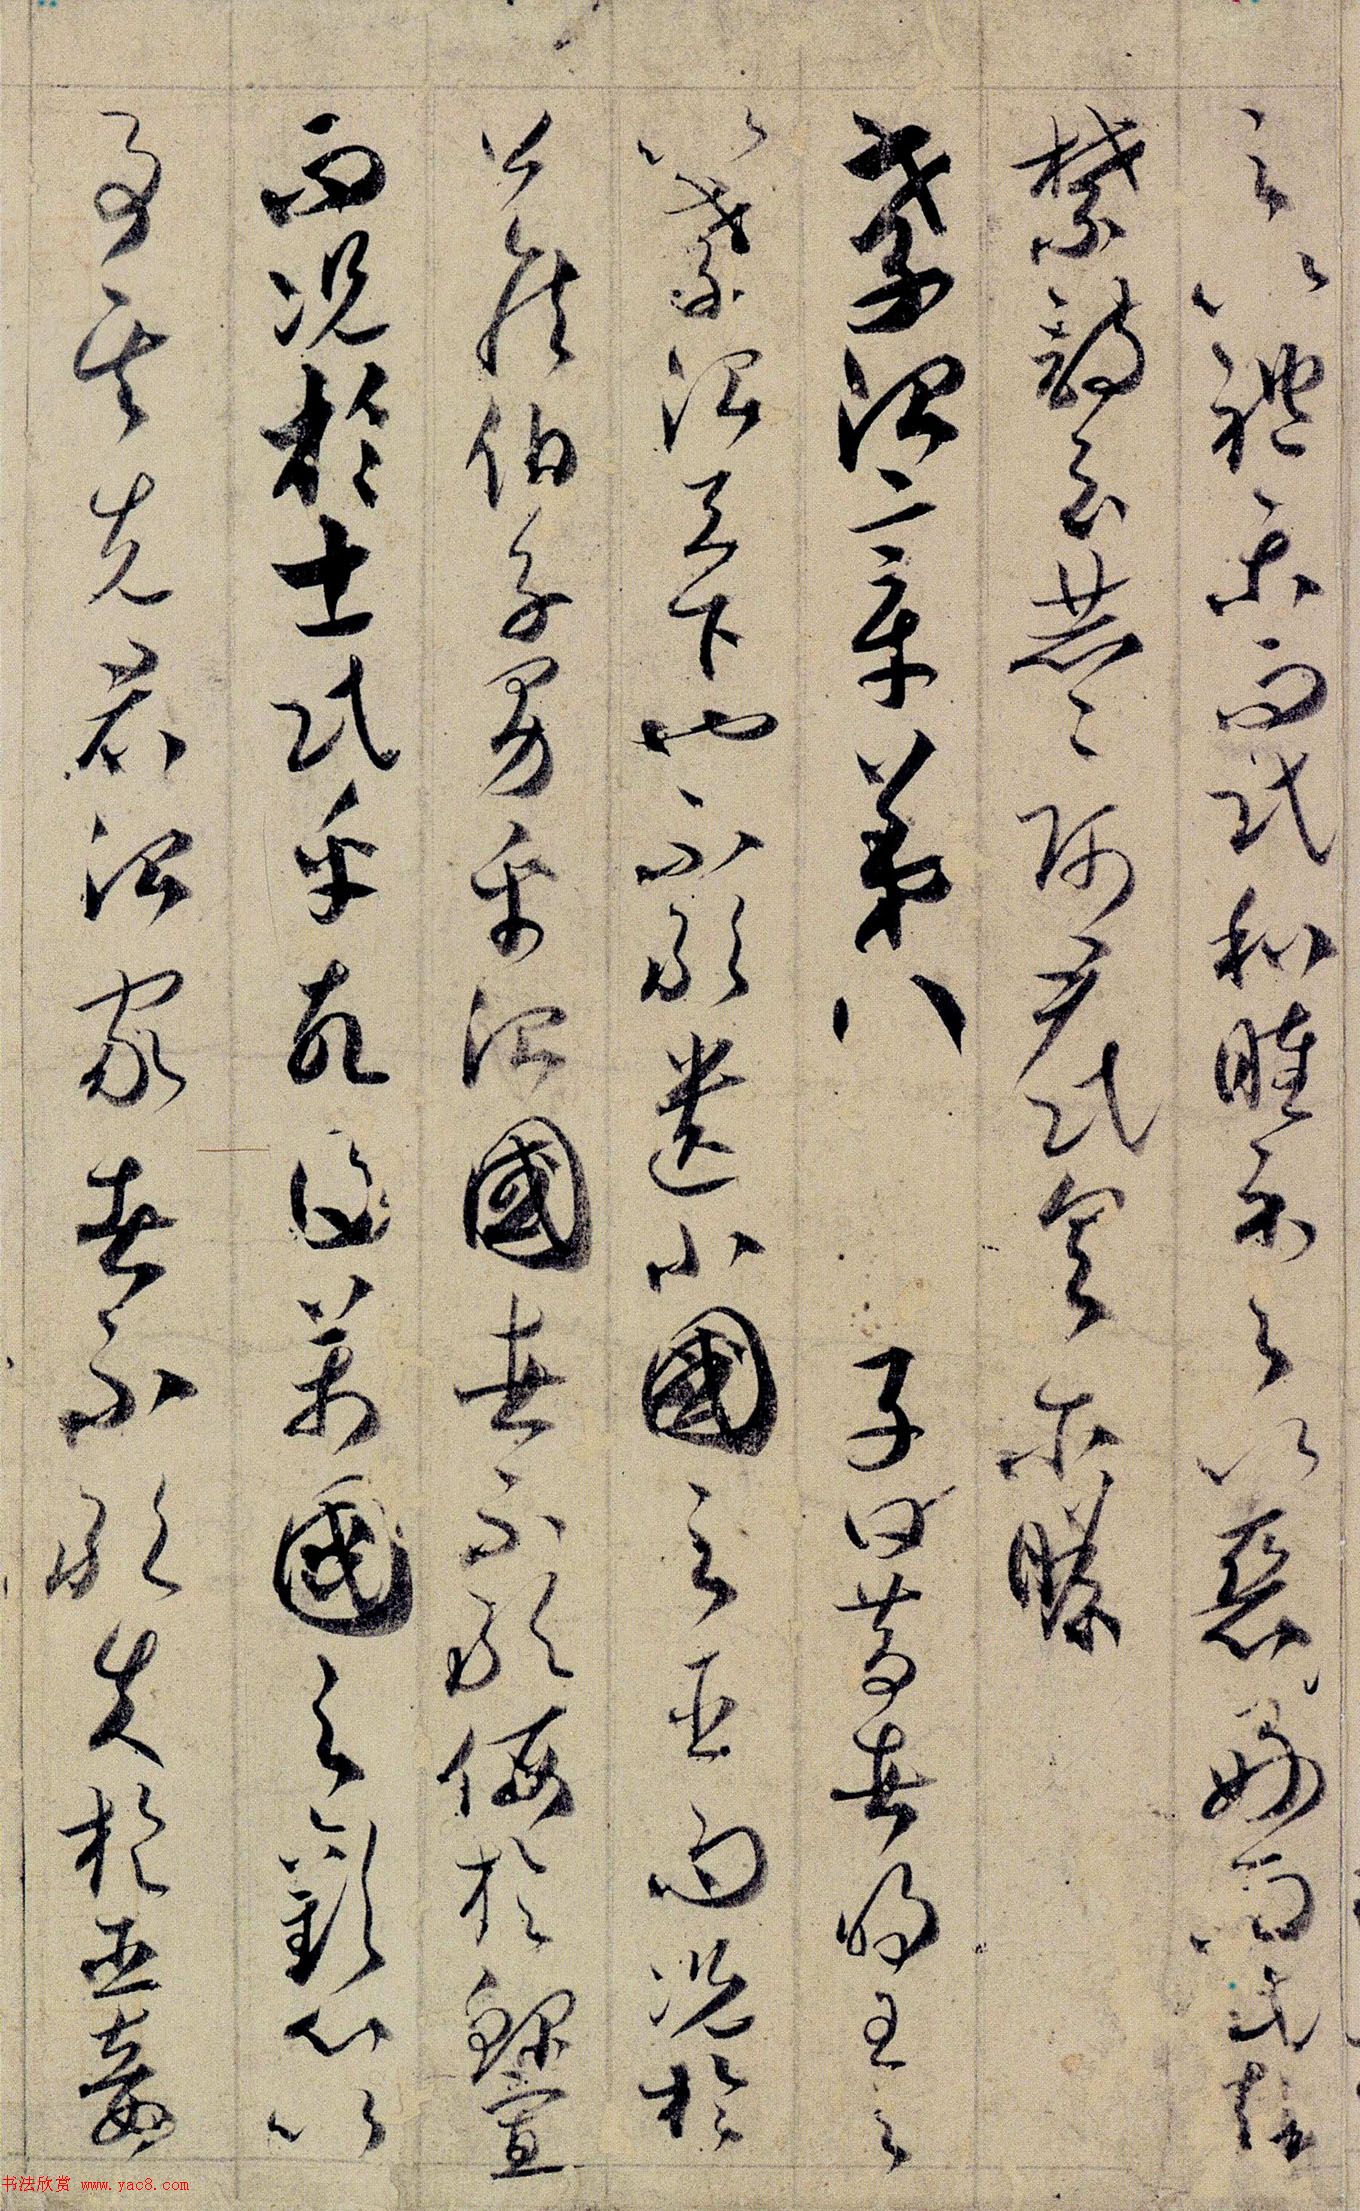 之以禮樂而民和睦示之以惡好而民知
禁詩云赫〻師尹民具爾瞻
孝治章第八 子曰昔者明王之
以孝治天下也不敢遺小國之臣而況於
公侯伯子男乎治國者不敢侮於鰥寡
而況於士民乎故得萬國之歡心以
事其先君治家者不敢失於臣妾
书法欣赏 www.yac8.com